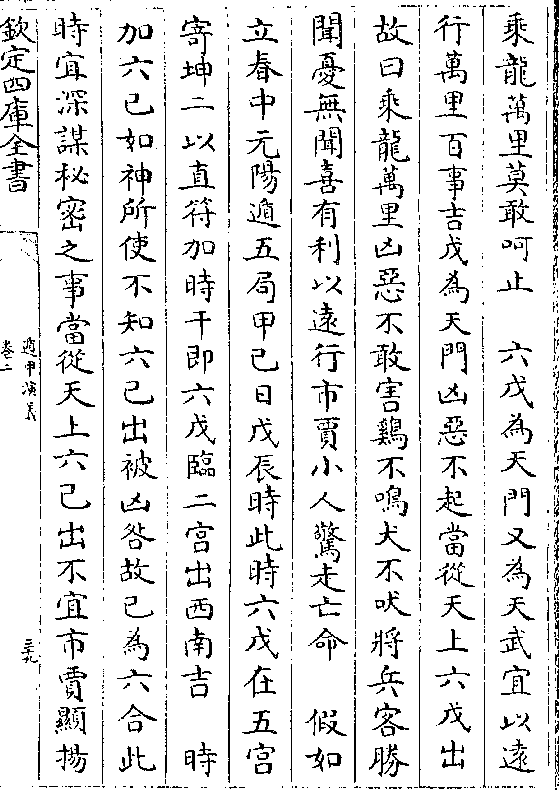 乘龍萬里莫敢呵止　六戊為天門又為天武宜以遠
行萬里百事吉戊為天門凶惡不起當從天上六戊出
故曰乘龍萬里凶惡不敢害鷄不鳴犬不吠將兵客勝
聞憂無聞喜有利以遠行市賈小人驚走亡命　假如
立春中元陽遁五局甲己日戊辰時此時六戊在五宫
寄坤二以直符加時干即六戊臨二宫出西南吉　時
加六己如神所使不知六己出被凶咎故己為六合此
時宜深謀秘密之事當從天上六己出不宜市賈顯揚
欽定四庫全書
遁甲演義
卷二
三九